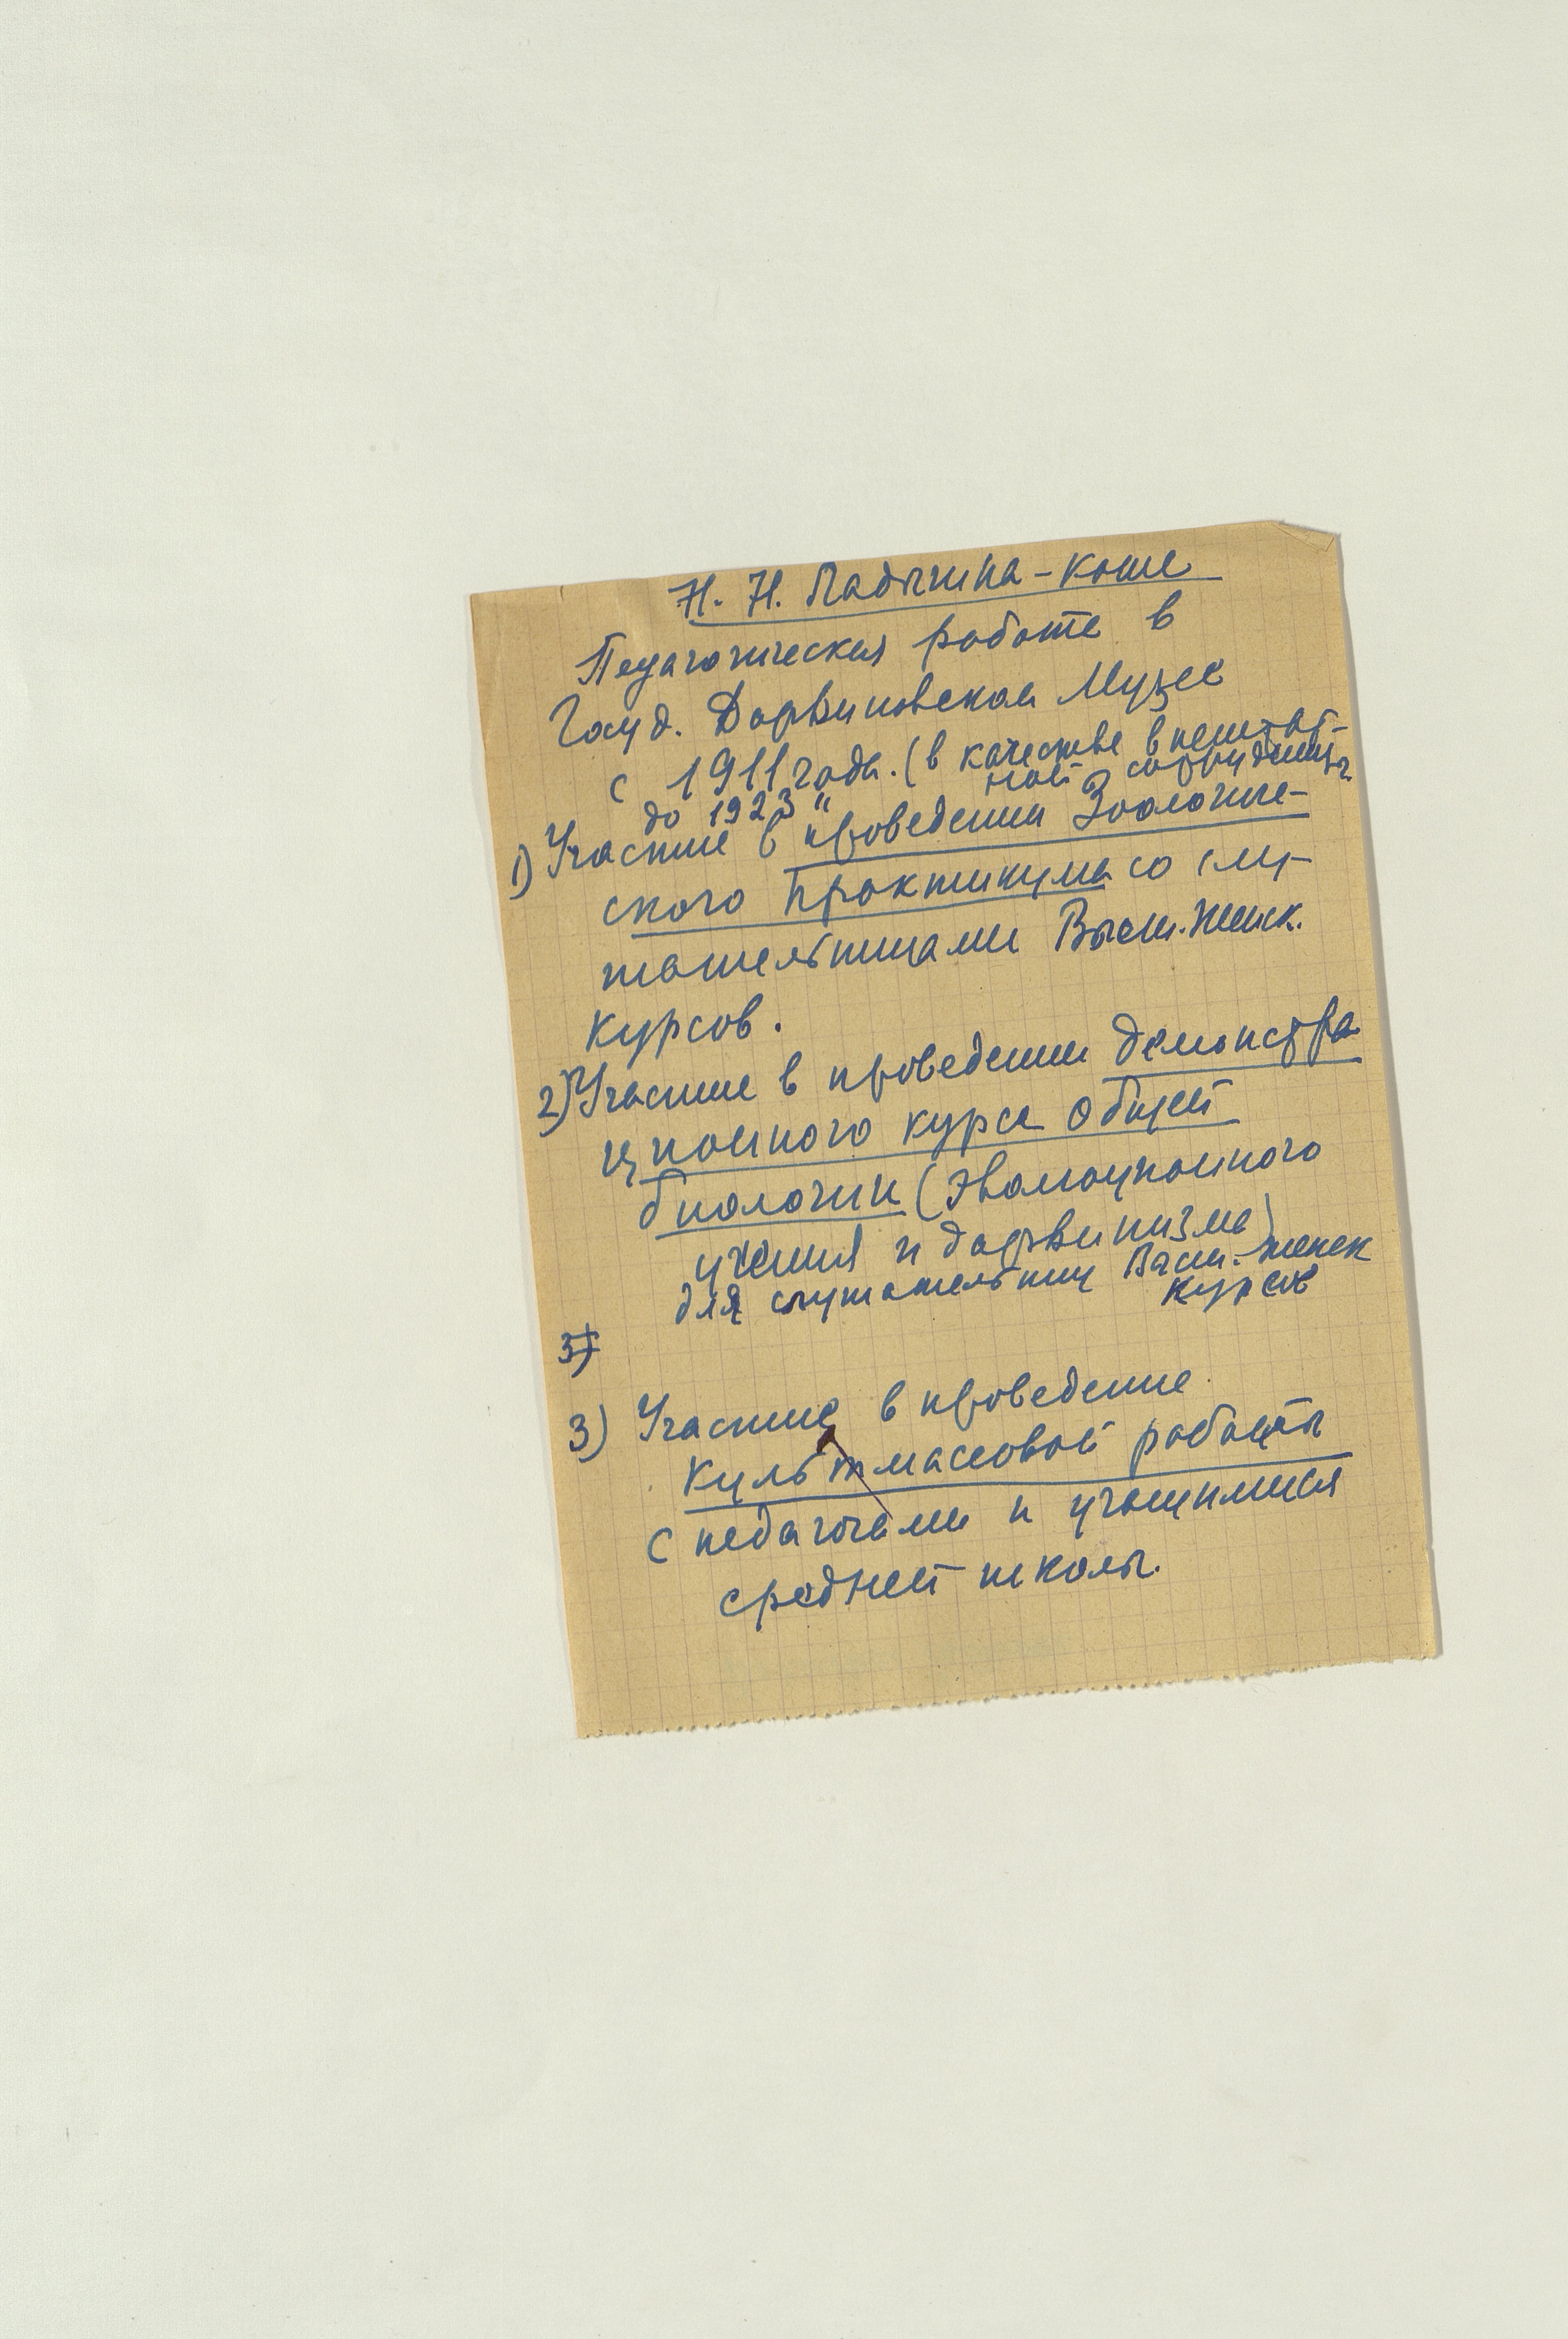 Н. Н. Ладыгина-Котс
Педагогическая работа в
Госуд. Дарвиновском Музее
с 1911 года. (в качестве внештат-
ной сотрудницы
до 1923 "
1) Участие в проведении Зоологиче-
ского Практикума со слу-
шательницами Высш. Женск.
Курсов.
2) Участие в проведении демонстра
ционного курса общей
биологии (Эволюционного
учения и дарвинизма)
для слушательниц Высш. женск
курсов
3)
3) Участие в проведение
культмассовой работы
с педагогами и учащимися
средней школы.